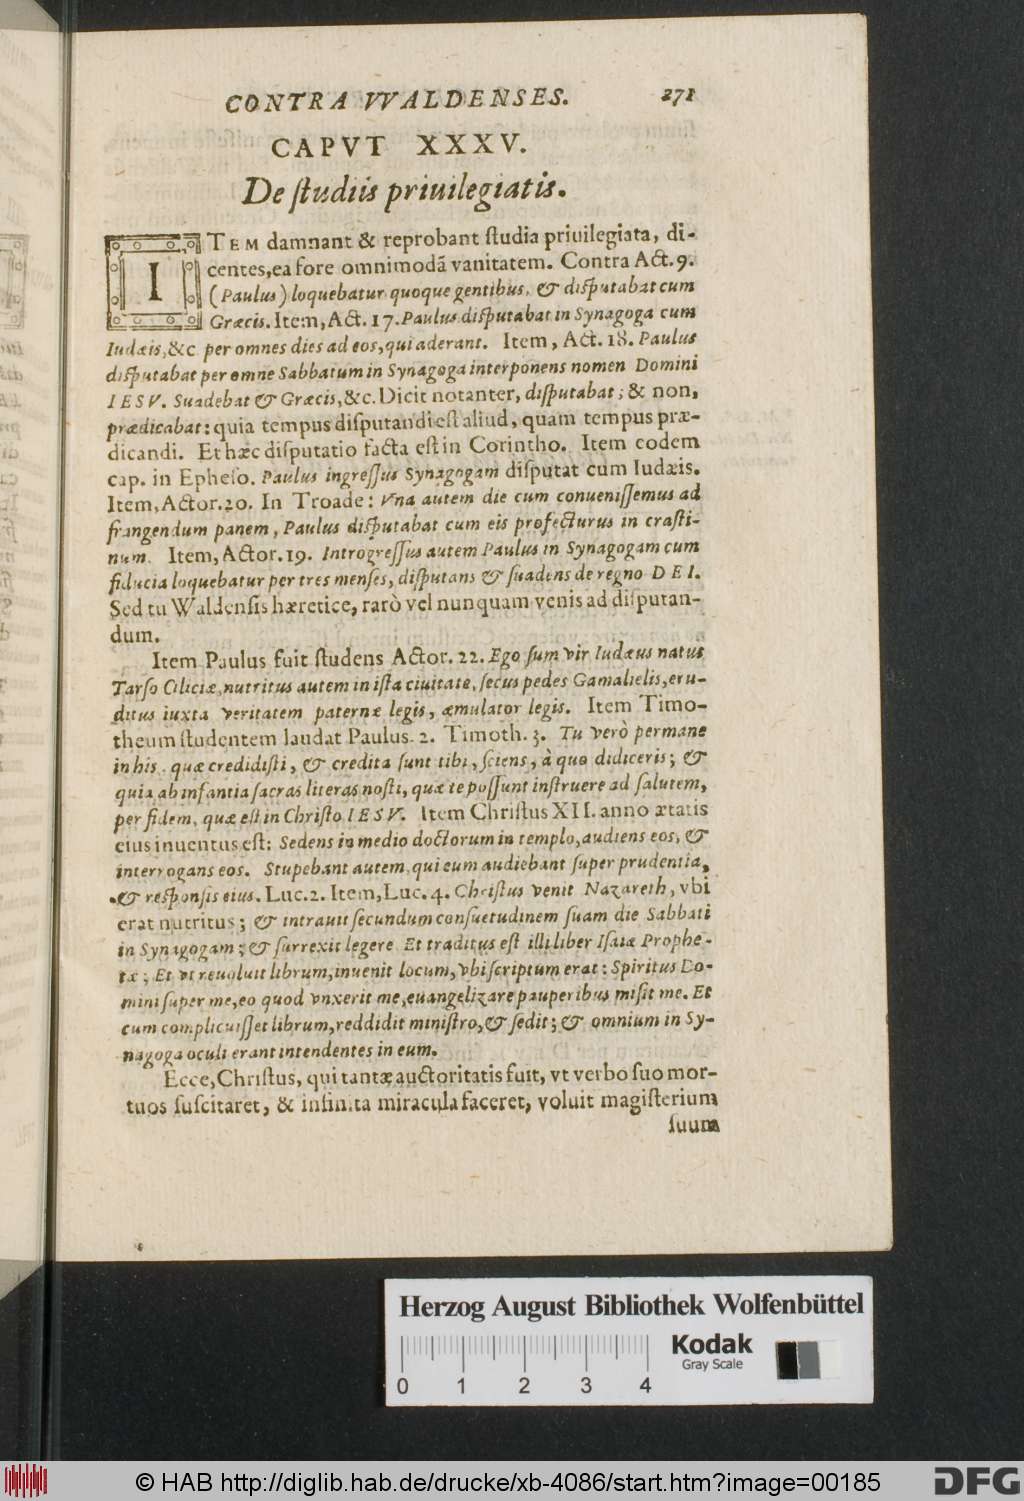 CONTRA VVALDENSES. 271
CAPVT XXXV.
De ſtudiis priuilegiatis.
ITEM damnant & reprobant ſtudia priuilegiata, di-
centes, ea fore omnimodã vanitatem. Contra Act. 9.
(Paulus) loquebatur quoque gentibus, & diſputabat cum
Græcis. Item, Act. 17. Paulus diſputabat in Synagoga cum
Iudæis, &c. per omnes dies ad eos, qui aderant. Item, Act. 18. Paulus
diſputabat per omne Sabbatum in Synagoga interponens nomen Domini
IESV. Suadebat & Græcis, &c. Dicit notanter, diſputabat; & non,
prædicabat: quia tempus diſputandi eſt aliud, quam tempus præ-
dicandi. Et hæc diſputatio facta eſt in Corintho. Item eodem
cap. in Epheſo. Paulus ingreſſus Synagogam diſputat cum Iudæis.
Item, Actor. 20. In Troade: Vna autem die cum conueniſſemus ad
frangendum panem, Paulus diſputabat cum eis profecturus in craſti-
num. Item, Actor. 19. Introgreſſus autem Paulus in Synagogam cum
fiducia loquebatur per tres menſes, diſputans & ſuadens de regno DEI.
Sed tu Waldenſis hæretice, rarò vel nunquam venis ad diſputan-
dum.
Item Paulus fuit ſtudens Actor. 22. Ego ſum vir Iudæus natus
Tarſo Ciliciæ, nutritus autem in iſta ciuitate, ſecus pedes Gamalielis, eru-
ditus iuxta veritatem paternæ legis, æmulator legis. Item Timo-
theum ſtudentem laudat Paulus. 2. Timoth. 3. Tu verò permane
in his, quæ credidiſti, & credita ſunt tibi, ſciens, à quo didiceris; &
quia ab infantia ſacras literas noſti, quæ te poſſunt inſtruere ad ſalutem,
per fidem, quæ eſt in Chriſto IESV. Item Chriſtus XII. anno ætatis
eius inuentus eſt: Sedens in medio doctorum in templo, audiens eos, &
interrogans eos. Stupebant autem, qui eum audiebant ſuper prudentia,
& reſponſis eius. Luc. 2. Item, Luc. 4. Chriſtus venit Nazareth, vbi
erat nutritus; & intrauit ſecundum conſuetudinem ſuam die Sabbati
in Synagogam; & ſurrexit legere. Et traditus eſt illi liber Iſaiæ Prophe-
tæ; Et vt reuoluit librum, inuenit locum, vbi ſcriptum erat: Spiritus Do-
mini ſuper me, eo quod vnxerit me, euangelizare pauperibus miſit me. Et
cum complicuiſſet librum, reddidit miniſtro, & ſedit; & omnium in Sy-
nagoga oculi erant intendentes in eum.
Ecce, Chriſtus, qui tantæ auctoritatis fuit, vt verbo ſuo mor-
tuos ſuſcitaret, & infinita miracula faceret, voluit magiſterium
ſuum
Herzog August Bibliothek Wolfenbüttel
Kodak
Gray Scale
0 1 2 3 4
© HAB http://diglib.hab.de/drucke/xb-4086/start.htm?image=00185
DFG